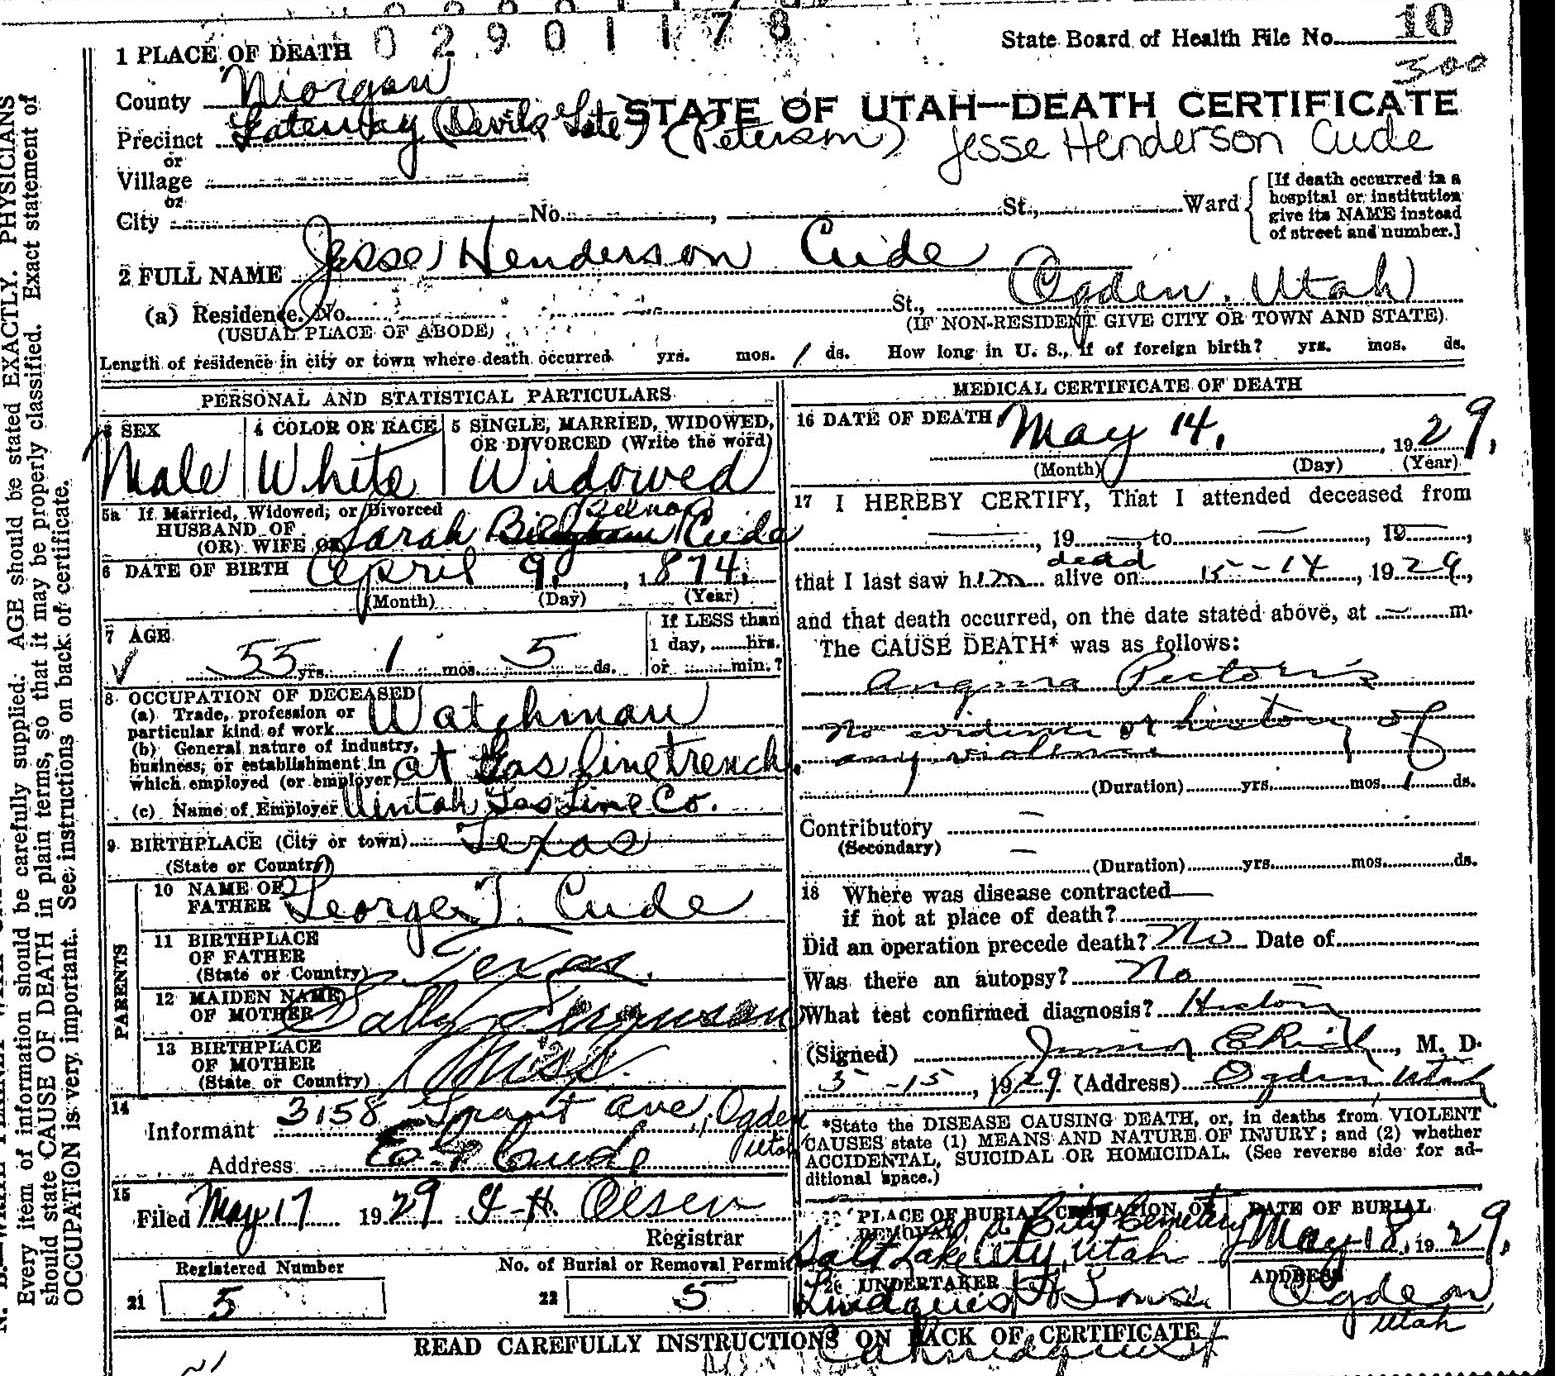 02901178
State Board of Health File No. 10
300
1 PLACE OF DEATH
County Morgan
STATE OF UTAH—DEATH CERTIFICATE
Precinct Gateway (Devils Gate) (Peterson) Jesse Henderson Cude
or
Village
or
City No. , St., Ward
[If death occurred in a
hospital or institution
give its NAME instead
of street and number.]
2 FULL NAME Jesse Henderson Cude
(a) Residence. No. St., Ogden, Utah
(USUAL PLACE OF ABODE) (IF NON-RESIDENT GIVE CITY OR TOWN AND STATE)
Length of residence in city or town where death occurred yrs. mos. 1 ds. How long in U. S., if of foreign birth? yrs. mos. ds.
PERSONAL AND STATISTICAL PARTICULARS
3 SEX 4 COLOR OR RACE 5 SINGLE, MARRIED, WIDOWED,
OR DIVORCED (Write the word)
Male White Widowed
5a If Married, Widowed, or Divorced
HUSBAND OF
(OR) WIFE OF Sarah Cude
6 DATE OF BIRTH April 9, 1874.
(Month) (Day) (Year)
7 AGE If LESS than
1 day, hrs.
55 yrs. 1 mos. 5 ds. or min.?
8 OCCUPATION OF DECEASED
(a) Trade, profession or
particular kind of work Watchman
(b) General nature of industry,
business, or establishment in
which employed (or employer) at Gas line trench.
(c) Name of Employer Uintah Gas Line Co.
9 BIRTHPLACE (City or town) Texas
(State or Country)
PARENTS
10 NAME OF
FATHER George T. Cude
11 BIRTHPLACE
OF FATHER
(State or Country) Texas.
12 MAIDEN NAME
OF MOTHER Sally Ferguson
13 BIRTHPLACE
OF MOTHER
(State or Country) Miss.
14
Informant 3158 Grant Ave., Ogden
Utah
Address E G Cude
15
Filed May 17 1929 H. Olsen
Registrar
Registered Number No. of Burial or Removal Permit
21 5 22 5
MEDICAL CERTIFICATE OF DEATH
16 DATE OF DEATH May 14, 1929.
(Month) (Day) (Year)
17 I HEREBY CERTIFY, That I attended deceased from
— , 19 —, to — , 19—,
dead
that I last saw him alive on 5-14, 1929,
and that death occurred, on the date stated above, at — m.
The CAUSE DEATH* was as follows:
Angina Pectoris
No evidence or history of
any violence
(Duration) yrs. mos. 1 ds.
Contributory —
(Secondary) —
(Duration) yrs. mos. ds.
18 Where was disease contracted —
if not at place of death?
Did an operation precede death? No Date of
Was there an autopsy? No
What test confirmed diagnosis? History
(Signed) Junior E Rich, M. D.
5-15, 1929 (Address) Ogden, Utah
*State the DISEASE CAUSING DEATH, or, in deaths from VIOLENT
CAUSES state (1) MEANS AND NATURE OF INJURY; and (2) whether
ACCIDENTAL, SUICIDAL OR HOMICIDAL. (See reverse side for ad-
ditional space.)
PLACE OF BURIAL, CREMATION, OR DATE OF BURIAL
REMOVAL City Cemetery
Salt Lake City, Utah May 18, 1929.
UNDERTAKER ADDRESS
Lindquist & Sons Ogden
Utah
READ CAREFULLY INSTRUCTIONS ON BACK OF CERTIFICATE
Every item of information should be carefully supplied. AGE should be stated EXACTLY. PHYSICIANS
should state CAUSE OF DEATH in plain terms, so that it may be properly classified. Exact statement of
OCCUPATION is very important. See instructions on back of certificate.